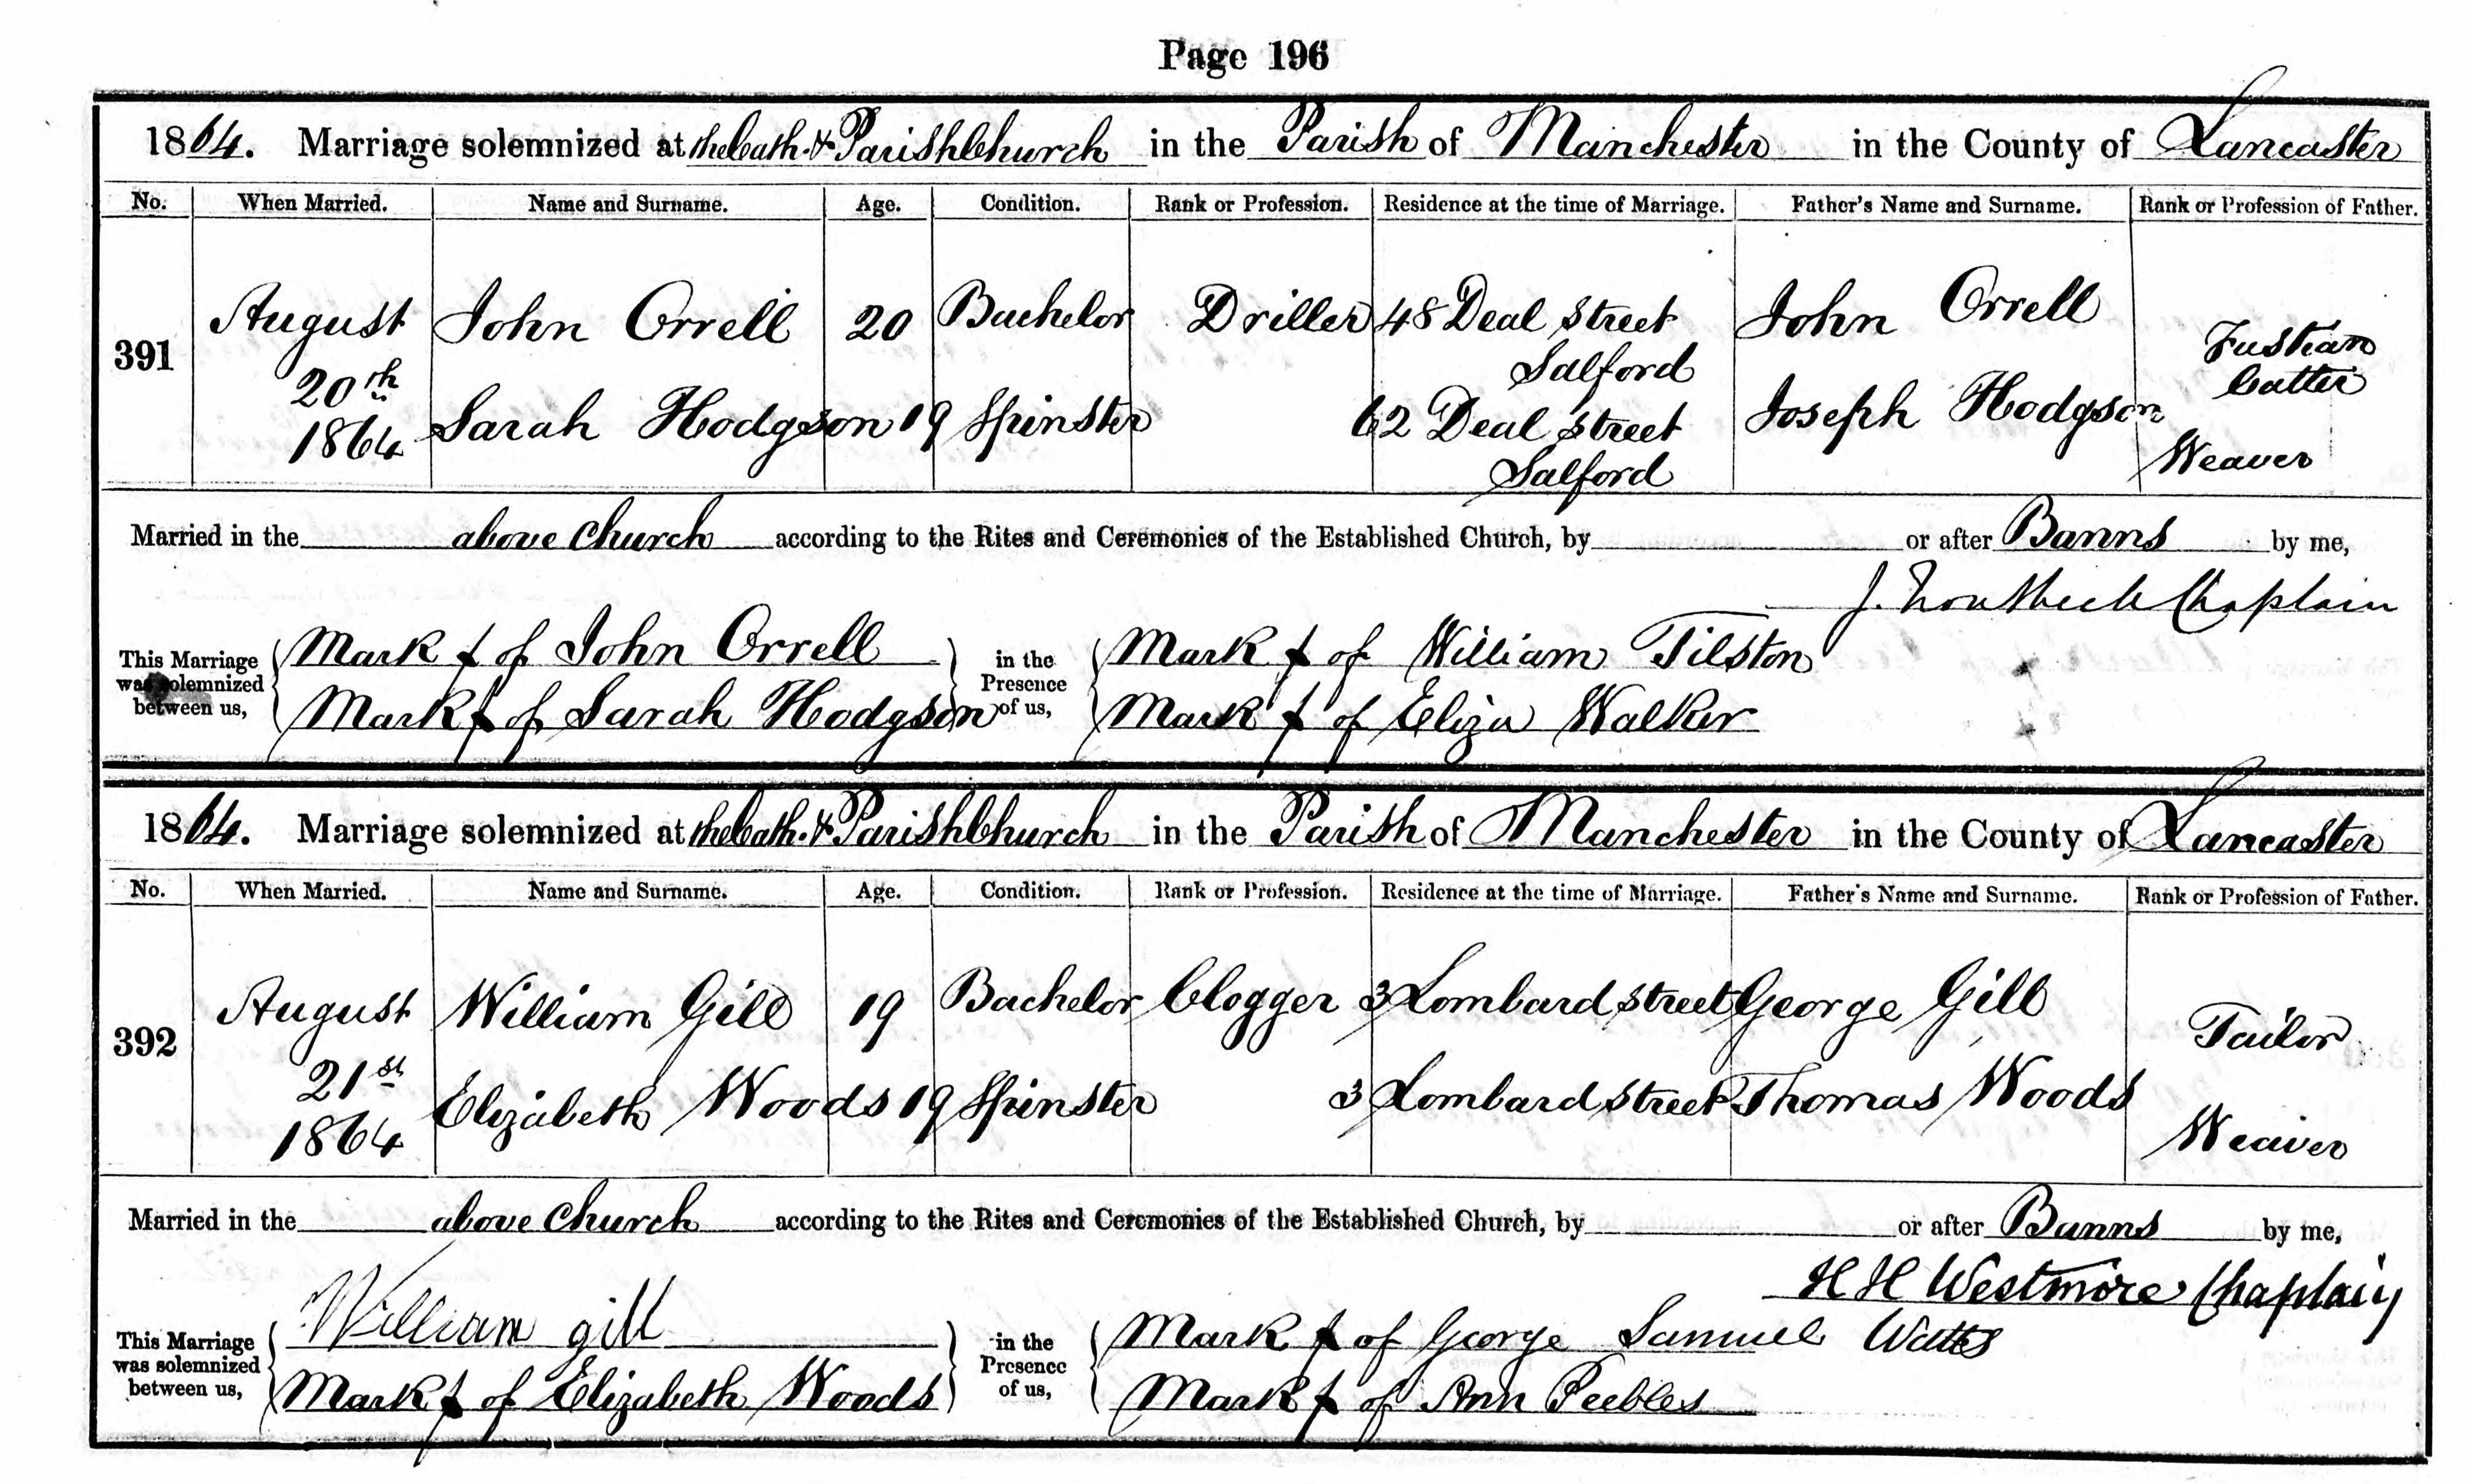 Page 196
1864. Marriage solemnized at the Cath. & Parish Church in the Parish of Manchester in the County of Lancaster
No. When Married. Name and Surname. Age. Condition. Rank or Profession. Residence at the time of Marriage. Father's Name and Surname. Rank or Profession of Father.
391 August 20th 1864 John Orrell 20 Bachelor Driller 48 Deal Street Salford John Orrell Fustian Cutter
Sarah Hodgson 19 Spinster 62 Deal Street Salford Joseph Hodgson Weaver
Married in the above Church according to the Rites and Ceremonies of the Established Church, by or after Banns by me,
J. Chaplain
This Marriage was solemnized between us, Mark X of John Orrell in the Presence of us, Mark X of William Tilston
Mark X of Sarah Hodgson Mark X of Eliza Walker
1864. Marriage solemnized at the Cath. & Parish Church in the Parish of Manchester in the County of Lancaster
No. When Married. Name and Surname. Age. Condition. Rank or Profession. Residence at the time of Marriage. Father's Name and Surname. Rank or Profession of Father.
392 August 21st 1864 William Gill 19 Bachelor Clogger 3 Lombard Street George Gill Tailor
Elizabeth Woods 19 Spinster 3 Lombard Street Thomas Woods Weaver
Married in the above Church according to the Rites and Ceremonies of the Established Church, by or after Banns by me,
H H Westmore Chaplain
This Marriage was solemnized between us, William gill in the Presence of us, Mark X of George Samuel Watts
Mark X of Elizabeth Woods Mark X of Ann Peebles